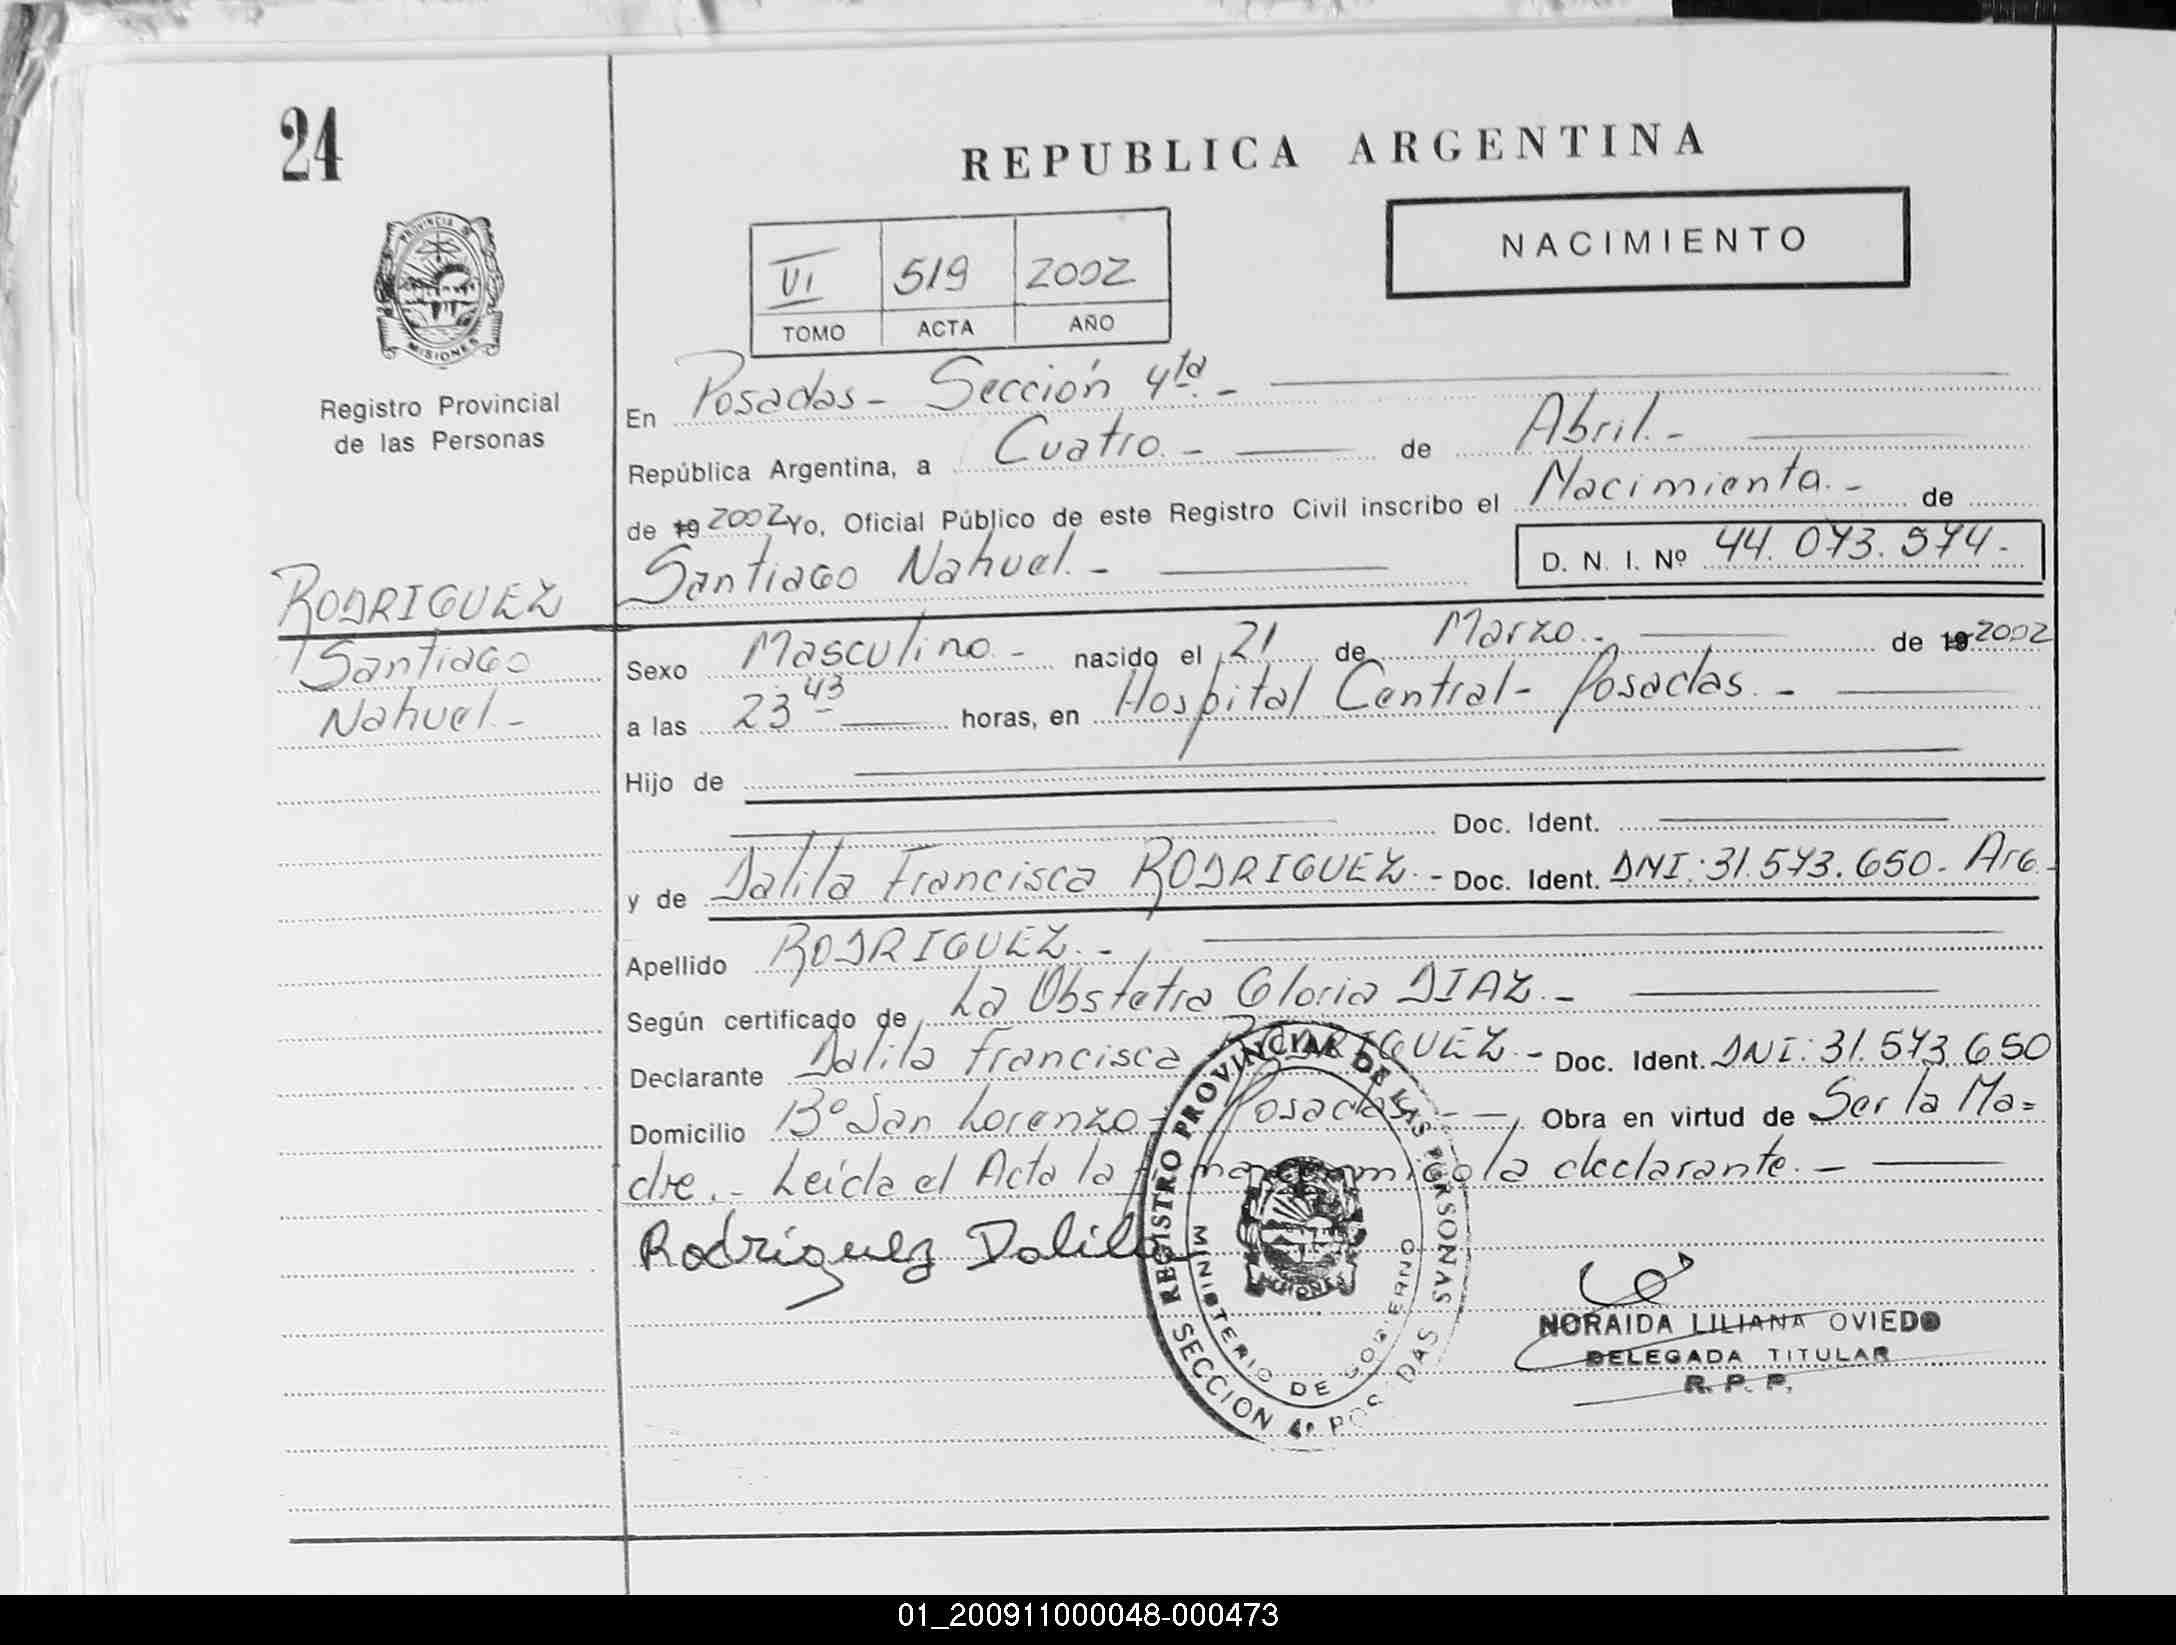 24
REPUBLICA ARGENTINA
NACIMIENTO
PROVINCIA DE
MISIONES
VI 519 2002
TOMO ACTA AÑO
Registro Provincial
de las Personas
En Posadas - Sección 4ta. -
República Argentina, a Cuatro. - de Abril. -
de 19 2002 Yo, Oficial Público de este Registro Civil inscribo el Nacimiento. - de
Santiago Nahuel. - D. N. I. Nº 44.073.574.-
RODRIGUEZ
Santiago
Nahuel. -
Sexo Masculino. - nacido el 21 de Marzo. - de 19 2002
a las 23 43 horas, en Hospital Central - Posadas. -
Hijo de
Doc. Ident.
y de Dalila Francisca RODRIGUEZ. - Doc. Ident. DNI: 31.573.650. Arg.
Apellido RODRIGUEZ. -
Según certificado de La Obstetra Gloria DIAZ. -
Declarante Dalila Francisca RODRIGUEZ. - Doc. Ident. DNI: 31.573.650
Domicilio Bº San Lorenzo - Posadas. - Obra en virtud de Ser la Ma=
dre. - Leída el Acta la firma conmigo la declarante. -
Rodríguez Dalila
REGISTRO PROVINCIAL DE LAS PERSONAS
MINISTERIO DE GOBIERNO
SECCION 4º POSADAS
NORAIDA LILIANA OVIEDO
DELEGADA TITULAR
R. P. P.
01_200911000048-000473